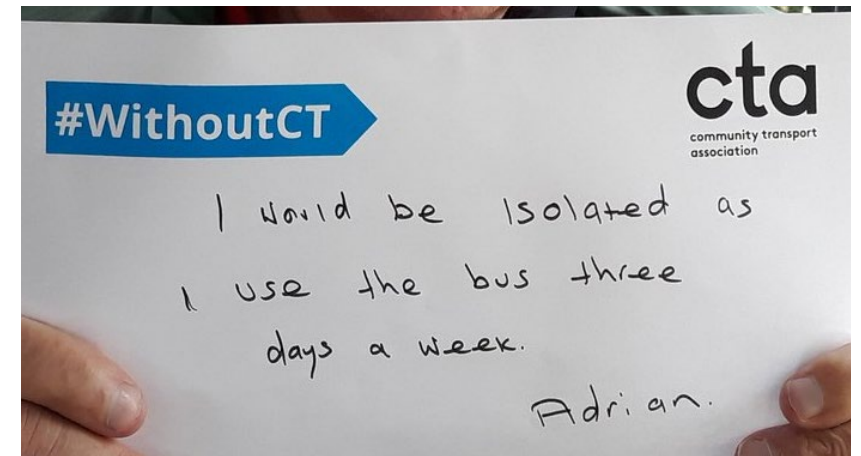 #WithoutCT
cta
community transport
association
I would be isolated as
I use the bus three
days a week.
Adrian.